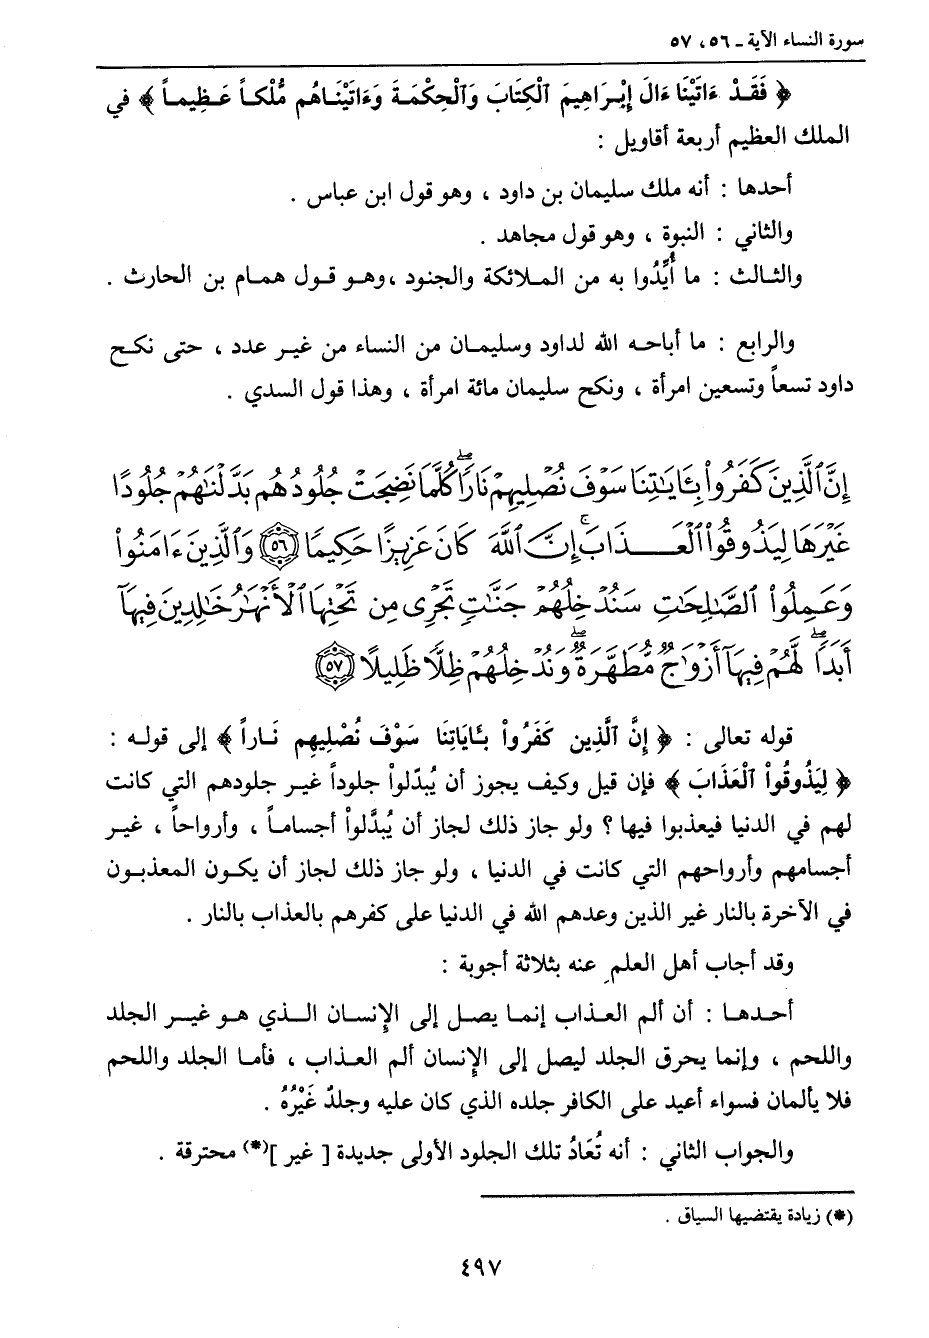 سورة النساء الآية ـ ٥٦، ٥٧
﴿ فَقَدْ ءَاتَيْنَا ءَالَ إِبْرَاهِيمَ الْكِتَابَ وَالْحِكْمَةَ وَءَاتَيْنَاهُم مُّلْكاً عَظِيماً ﴾ في
الملك العظيم أربعة أقاويل :
أحدها : أنه ملك سليمان بن داود ، وهو قول ابن عباس .
والثاني : النبوة ، وهو قول مجاهد .
والثالث : ما أُيِّدُوا به من الملائكة والجنود ،وهو قول همام بن الحارث .
والرابع : ما أباحه الله لداود وسليمان من النساء من غير عدد ، حتى نكح
داود تسعاً وتسعين امرأة ، ونكح سليمان مائة امرأة ، وهذا قول السدي .
إِنَّ ٱلَّذِينَ كَفَرُوا۟ بِـَٔايَـٰتِنَا سَوْفَ نُصْلِيهِمْ نَارًۭا ۖ كُلَّمَا نَضِجَتْ جُلُودُهُم بَدَّلْنَـٰهُمْ جُلُودًا
غَيْرَهَا لِيَذُوقُوا۟ ٱلْعَذَابَ ۗ إِنَّ ٱللَّهَ كَانَ عَزِيزًا حَكِيمًۭا ٥٦ وَٱلَّذِينَ ءَامَنُوا۟
وَعَمِلُوا۟ ٱلصَّـٰلِحَـٰتِ سَنُدْخِلُهُمْ جَنَّـٰتٍۢ تَجْرِى مِن تَحْتِهَا ٱلْأَنْهَـٰرُ خَـٰلِدِينَ فِيهَآ
أَبَدًۭا ۖ لَّهُمْ فِيهَآ أَزْوَٰجٌۭ مُّطَهَّرَةٌۭ ۖ وَنُدْخِلُهُمْ ظِلًّۭا ظَلِيلًا ٥٧
قوله تعالى : ﴿ إِنَّ ٱلَّذِين كَفَرُواْ بـَٔايَاتِنَا سَوْفَ نُصْلِيهِم نَاراً ﴾ إلى قوله :
﴿ لِيَذُوقُواْ ٱلْعَذَابَ ﴾ فإن قيل وكيف يجوز أن يُبدّلواْ جلوداً غير جلودهم التي كانت
لهم في الدنيا فيعذبوا فيها ؟ ولو جاز ذلك لجاز أن يُبدَّلواْ أجساماً ، وأرواحاً ، غير
أجسامهم وأرواحهم التي كانت في الدنيا ، ولو جاز ذلك لجاز أن يكون المعذبون
في الآخرة بالنار غير الذين وعدهم الله في الدنيا على كفرهم بالعذاب بالنار .
وقد أجاب أهل العلم عنه بثلاثة أجوبة :
أحدها : أن ألم العذاب إنما يصل إلى الإنسان الذي هو غير الجلد
واللحم ، وإنما يحرق الجلد ليصل إلى الإنسان ألم العذاب ، فأما الجلد واللحم
فلا يألمان فسواء أعيد على الكافر جلده الذي كان عليه وجلدٌ غَيْرُهُ .
والجواب الثاني : أنه تُعَادُ تلك الجلود الأولى جديدة [ غير ](*) محترقة .
(*) زيادة يقتضيها السياق .
٤٩٧